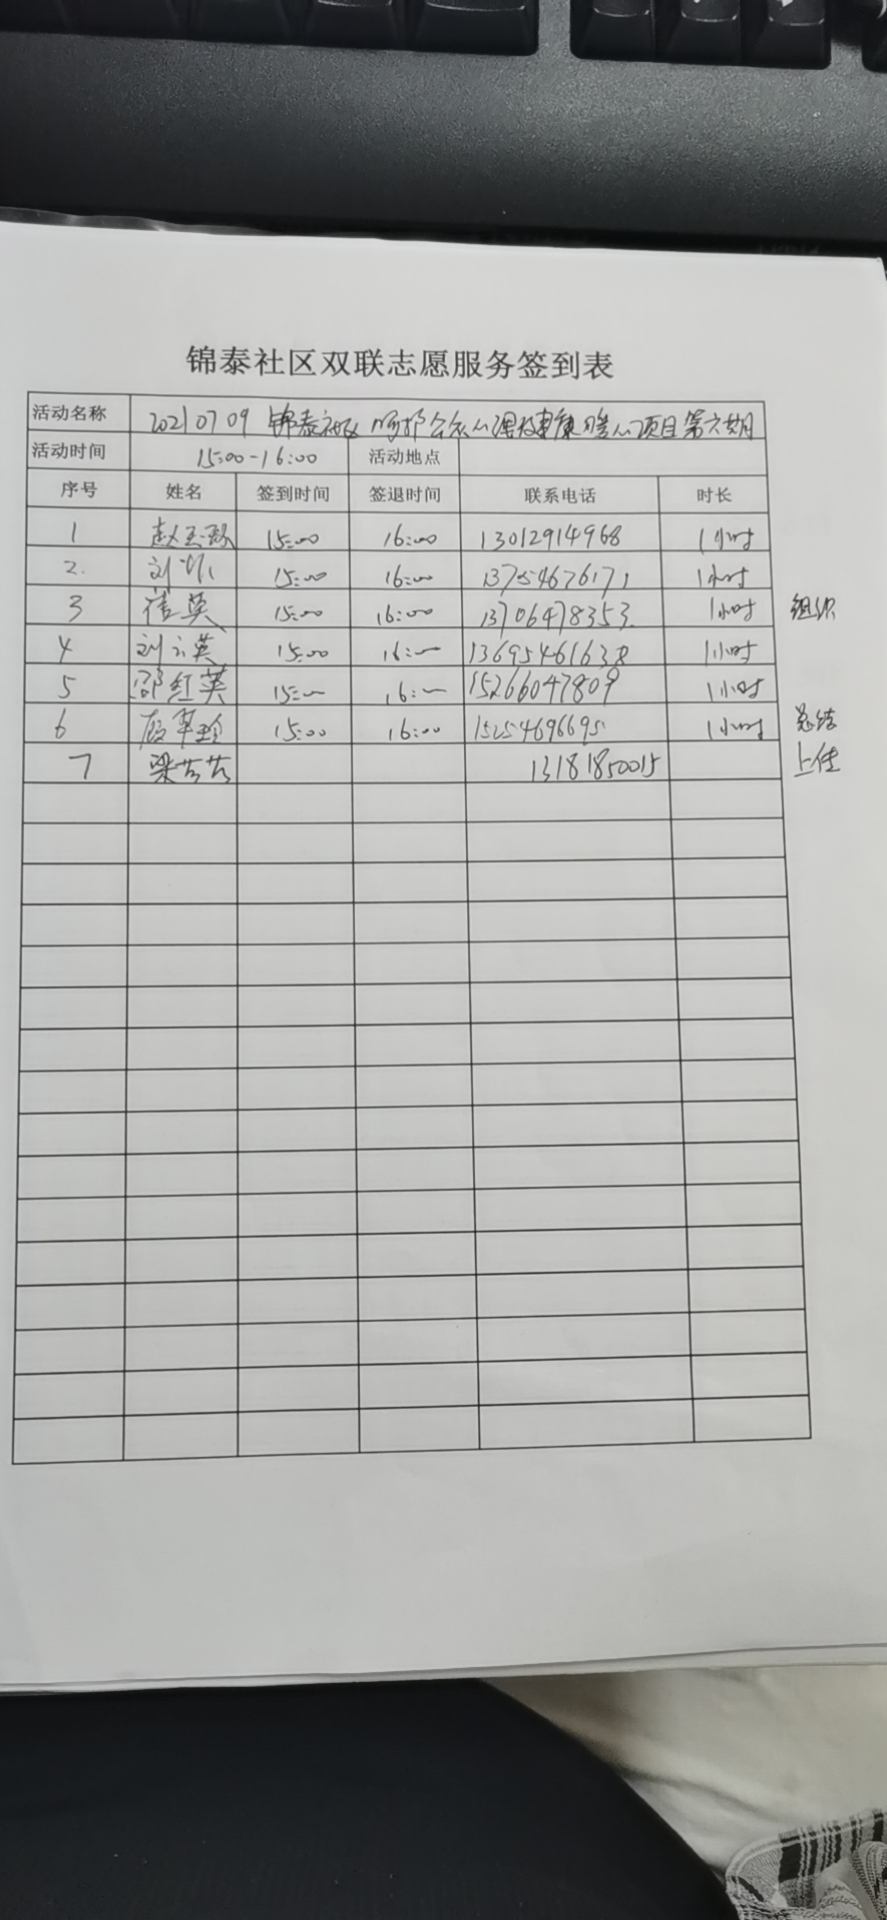 锦泰社区双联志愿服务签到表
活动名称 20210709 锦泰社区 呵护公众心理健康暖心项目第六期
活动时间 15:00-16:00 活动地点
序号 姓名 签到时间 签退时间 联系电话 时长
1 赵玉 15:00 16:00 13012914968 1小时
2. 刘 15:00 16:00 13754676171 1小时
3 英 15:00 16:00 13706478353 1小时 组织
4 刘云英 15:00 16:00 13695461638 1小时
5 邵红英 15:00 16:00 15266047809 1小时
6 翠玲 15:00 16:00 15254696695 1小时 总结
7 梁苦苦 13181850015 上传